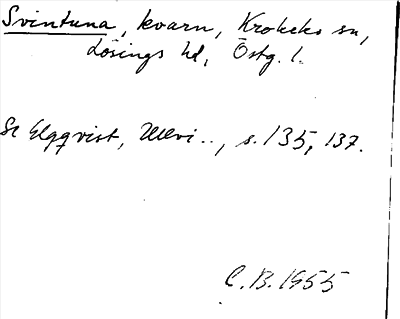 Svintuna, kvarn, Krokeks sn,
Lösings hd, Östg. l.
Se Elgqvist, Ullvi.., s. 135, 137.
C.B. 1955